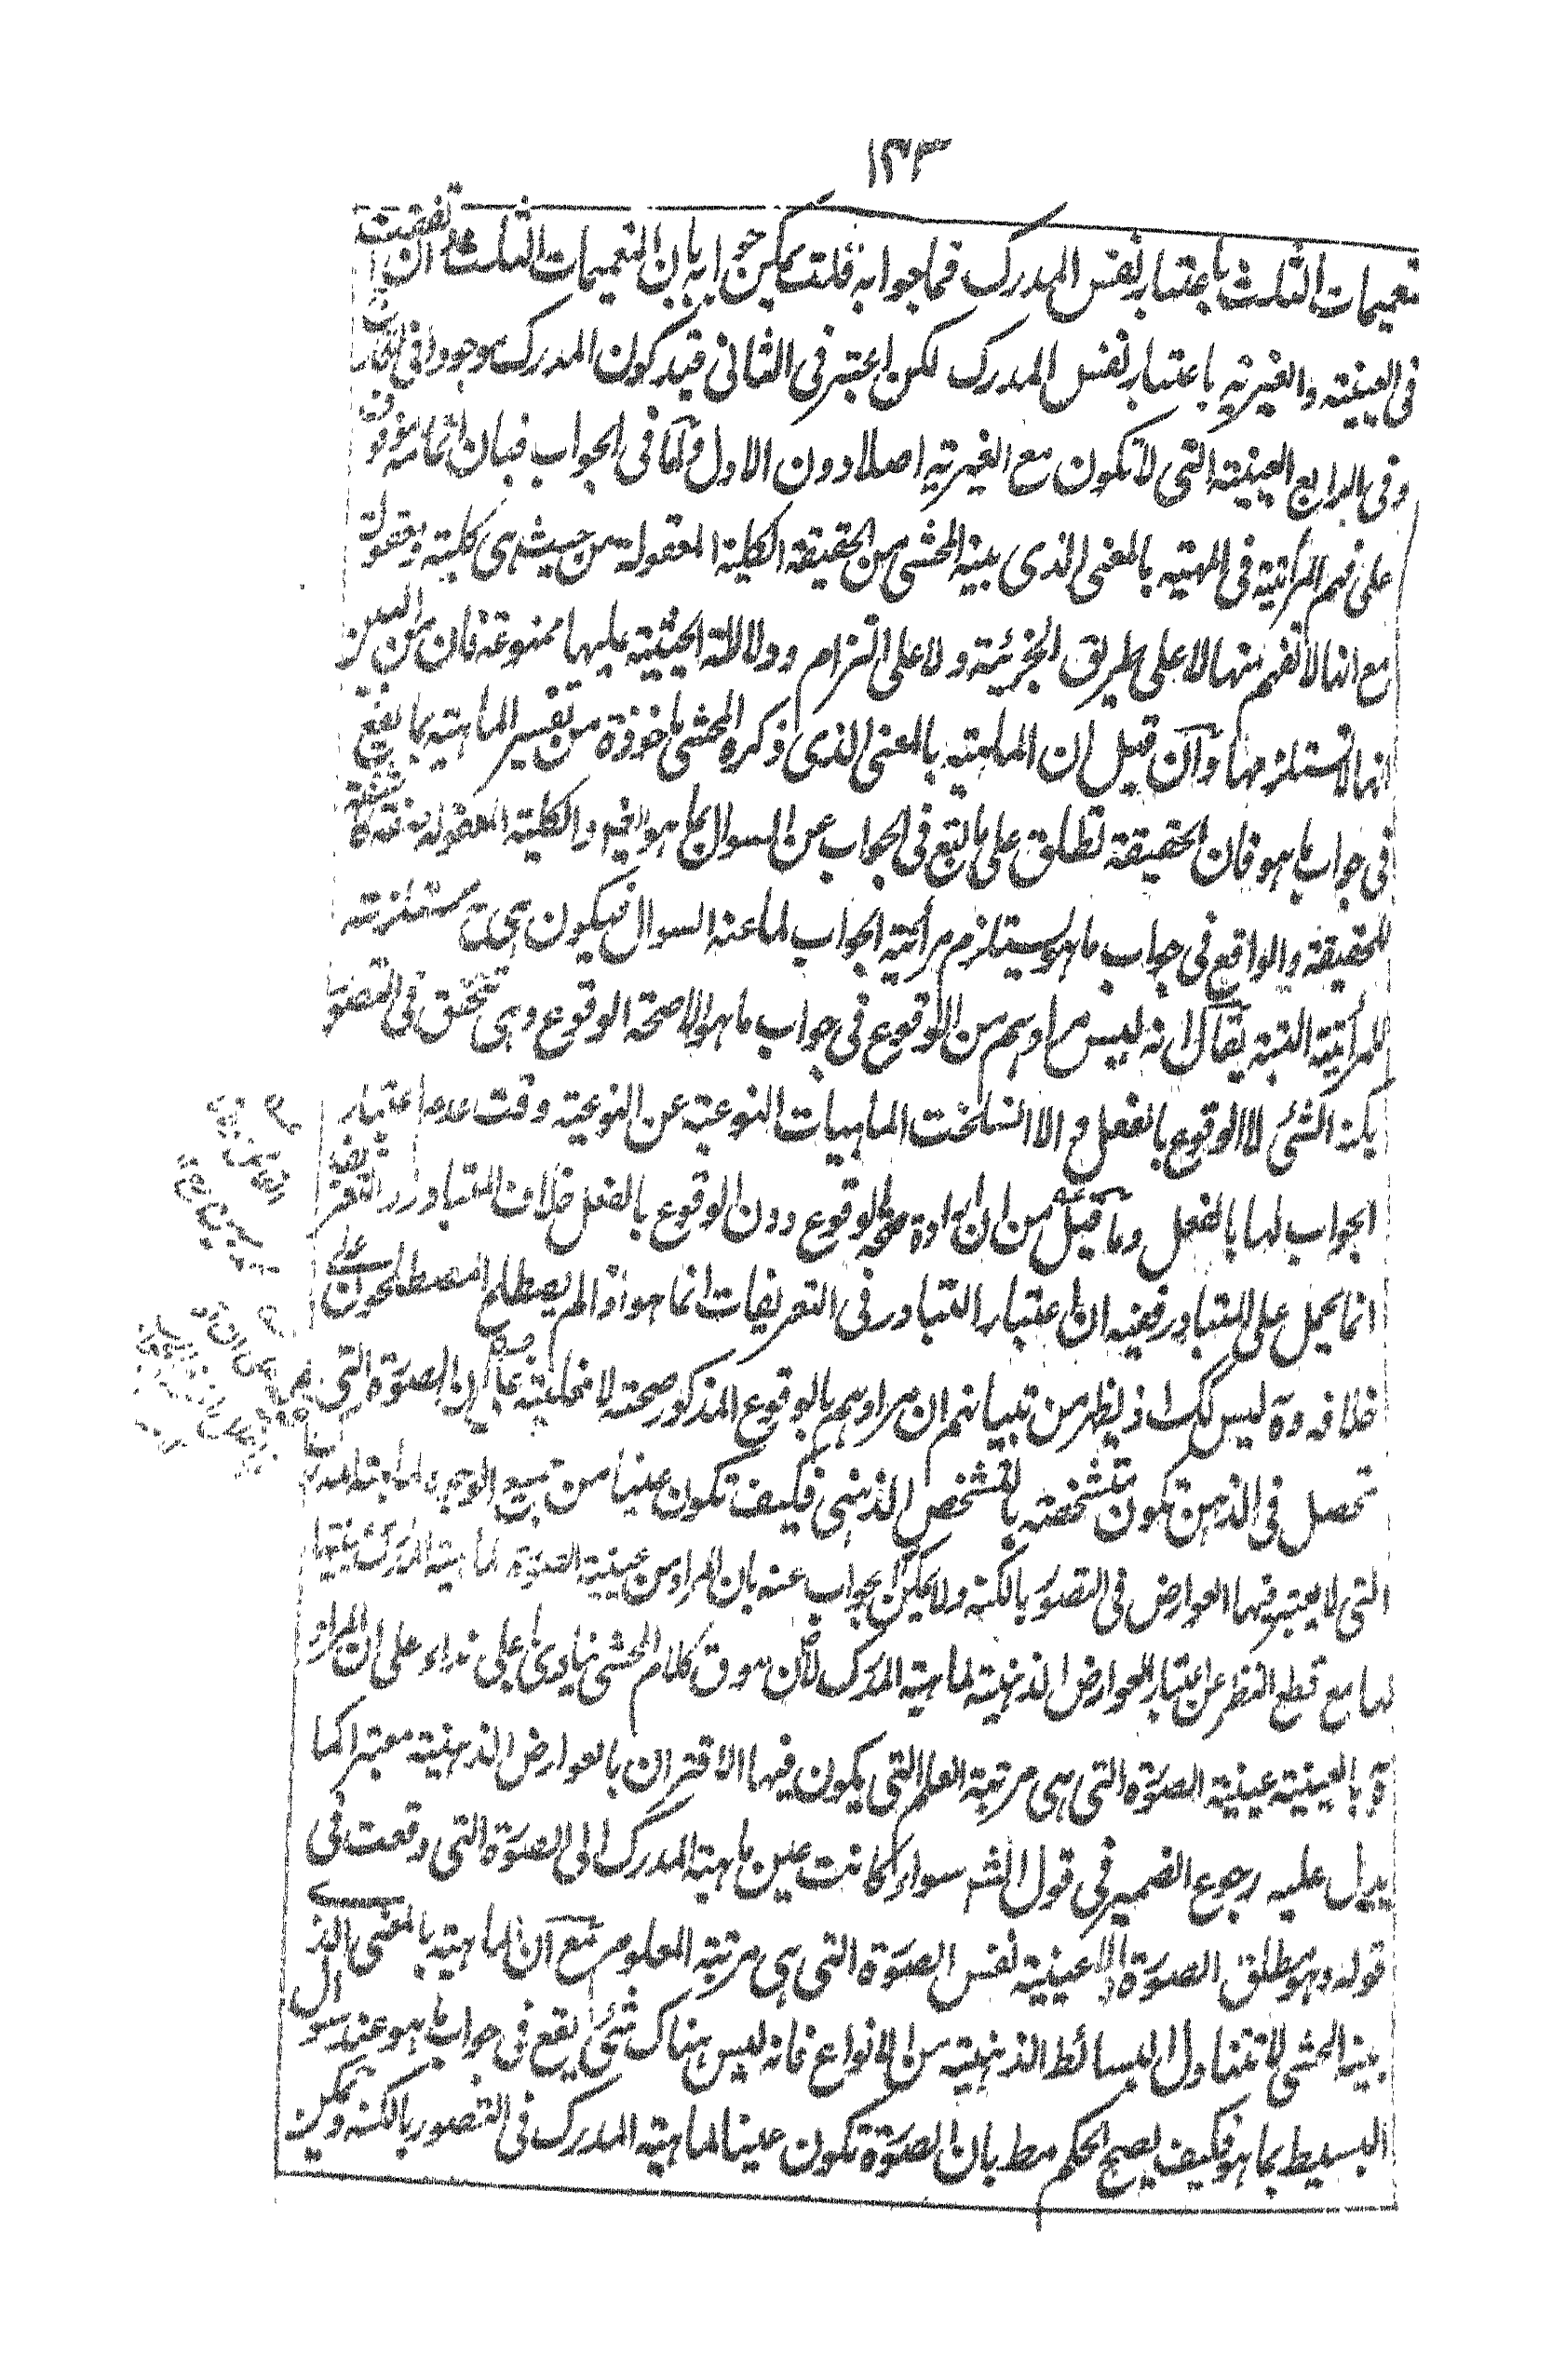 ١٤٣
تعميمات الثلث باعتبار نفس المدرك فما جوابه قلت يمكن جوابه بان التعميمات الثلث وان اتفقت
فى العينية والغيرية باعتبار نفس المدرك لكن اعتبر فى الثانى قيد كون المدرك موجودا فى الخارج
وفى الرابع العينية التى لا تكون مع الغيرية اصلا دون الاول واما فى الجواب فبان اتمامه موقوف
على فهم المرأتية فى المهية بالمعنى الذى بينه المحشى من الحقيقة الكلية المعقولة من حيث هى كلية معقولة
مع انها لا تفهم منها لا على طريق الجزئية ولا على التزام ودلالة الحيثية عليها ممنوعة فان من البين
انها لا تستلزمها وان قيل ان الماهية بالمعنى الذى ذكره المحشى ماخوذة من تفسير الماهية بما يقع
فى جواب ما هو فان الحقيقة تطلق على ما يقع فى الجواب عن السوال بما هو والكلية المعقولة
للحقيقة والواقع فى جواب ما هو يستلزم مرأتية الجواب لما عنه السوال فيكون هى ح مستلزمة
للمرأتية البتة يقال انه ليس مرادهم من الوقوع فى جواب ما هو الا صحة الوقوع وهى تتحقق فى التصور
بكنه الشئ لا الوقوع بالفعل والا انسلخت الماهيات النوعية عن النوعية وقت عدم اعتبار
الجواب لها بالفعل وما قيل من ان ارادة صحة الوقوع دون الوقوع بالفعل خلاف المتبادر والتعريف
انما يحمل على المتبادر ففيه ان اعتبار التبادر فى التعريفات انما هو اذا لم يصطلح المصطلحون على
خلافه وة ليس كك اذ يظهر من تبيانهم ان مرادهم بالوقوع المذكور صحته لا فعليته ان الصورة التى
تحصل فى الذهن تكون متشخصة بالتشخص الذهنى فكيف تكون عينا من جميع الوجوه
التى لا يعتبر فيها العوارض فى التصور بالكنه ولا يمكن الجواب عنه بان المراد من عينية الصورة لماهية المدرك عينيتها
لها مع قطع النظر عن اعتبار العوارض الذهنية لماهية المدرك لان سوق كلام المحشى ينادى باعلى نداء على ان المراد
ة بالعينية عينية الصورة التى هى مرتبة العلم التى يكون فيها الاقتران بالعوارض الذهنية معتبرا كما
يدل عليه رجوع الضمير فى قول الشه سواء كانت عين ماهية المدرك الى الصورة التى وقعت فى
قوله وهو مطلق الصورة لا عينية نفس الصورة التى هى مرتبة المعلوم مع ان الماهية بالمعنى الذى
بينه المحشى لا تتناول البسائط الذهنية من الانواع فانه ليس هناك شئ يقع فى جواب ما هو عند سوال
البسيط بما هو فكيف يصح الحكم مط بان الصورة تكون عينا لماهية المدرك فى التصور بالكنه ويمكن